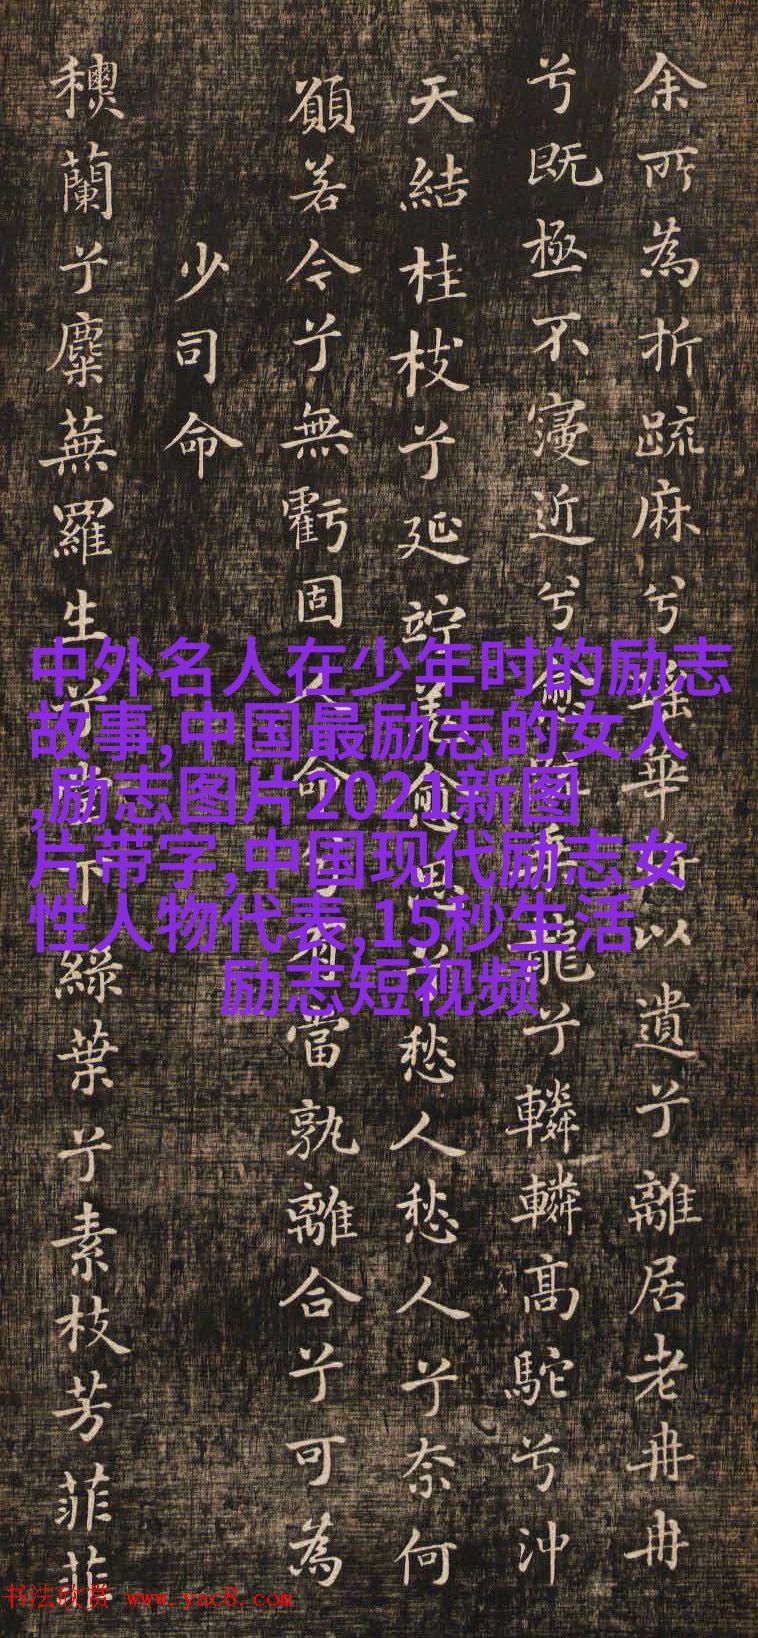 余所為折疏麻兮瑶華将以遺兮離居老冉冉
兮既極不寖近兮愈疏乘龍兮轔轔高駝兮沖
天結桂枝兮延竚羌愈思兮愁人愁人兮奈何
願若今兮無虧固人命兮有當孰離合兮可為
少司命
蘭兮麋蕪羅生兮堂下綠葉兮素枝芳菲菲
中外名人在少年时的励志
故事,中国最励志的女人
,励志图片2021新图
片带字,中国现代励志女
性人物代表,15秒生活
励志短视频
书法欣赏 www.yac8.com